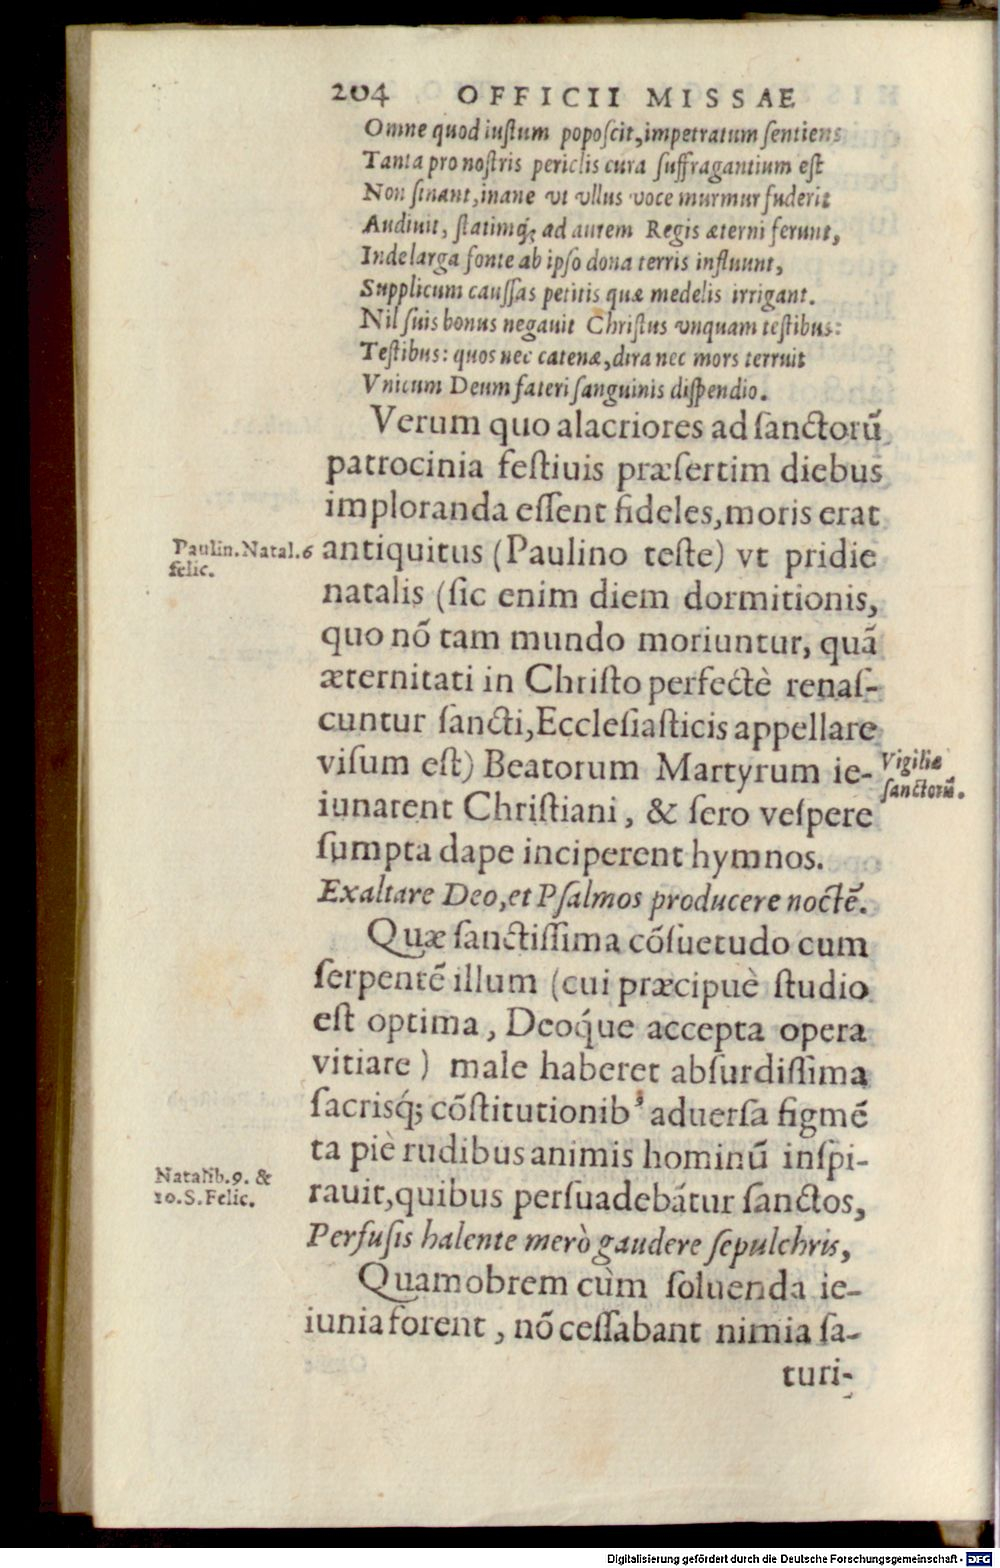 204 OFFICII MISSAE
Omne quod iuſtum popoſcit,impetratum ſentiens
Tanta pro noſtris periclis cura ſuffragantium eſt
Non ſinant,inane vt vllus voce murmur fuderit
Audiuit, ſtatimq́; ad aurem Regis æterni ferunt,
Inde larga fonte ab ipſo dona terris influunt,
Supplicum cauſſas petitis quæ medelis irrigant.
Nil ſuis bonus negauit Chriſtus vnquam teſtibus:
Teſtibus: quos nec catenæ,dira nec mors terruit
Vnicum Deum fateri ſanguinis diſpendio.
Verum quo alacriores ad ſanctorū
patrocinia feſtiuis præſertim diebus
imploranda eſſent fideles,moris erat
Paulin.Natal.6
felic.
antiquitus (Paulino teſte) vt pridie
natalis (ſic enim diem dormitionis,
quo nō tam mundo moriuntur, quā
æternitati in Chriſto perfectè renaſ-
cuntur ſancti,Eccleſiaſticis appellare
viſum eſt) Beatorum Martyrum ie-
Vigiliæ
ſanctorū.
iunarent Chriſtiani, & ſero veſpere
ſumpta dape inciperent hymnos.
Exaltare Deo,et Pſalmos producere noctē.
Quæ ſanctiſſima cōſuetudo cum
ſerpentē illum (cui præcipuè ſtudio
eſt optima, Deoq́ue accepta opera
vitiare) male haberet abſurdiſſima
ſacrisq́; cōſtitutionibꝰ aduerſa figmē
ta piè rudibus animis hominū inſpi-
Natalib.9. &
10.S.Felic.
rauit,quibus perſuadebātur ſanctos,
Perfuſis halente merò gaudere ſepulchris,
Quamobrem cùm ſoluenda ie-
iunia forent, nō ceſſabant nimia ſa-
turi-
Digitalisierung gefördert durch die Deutsche Forschungsgemeinschaft - DFG